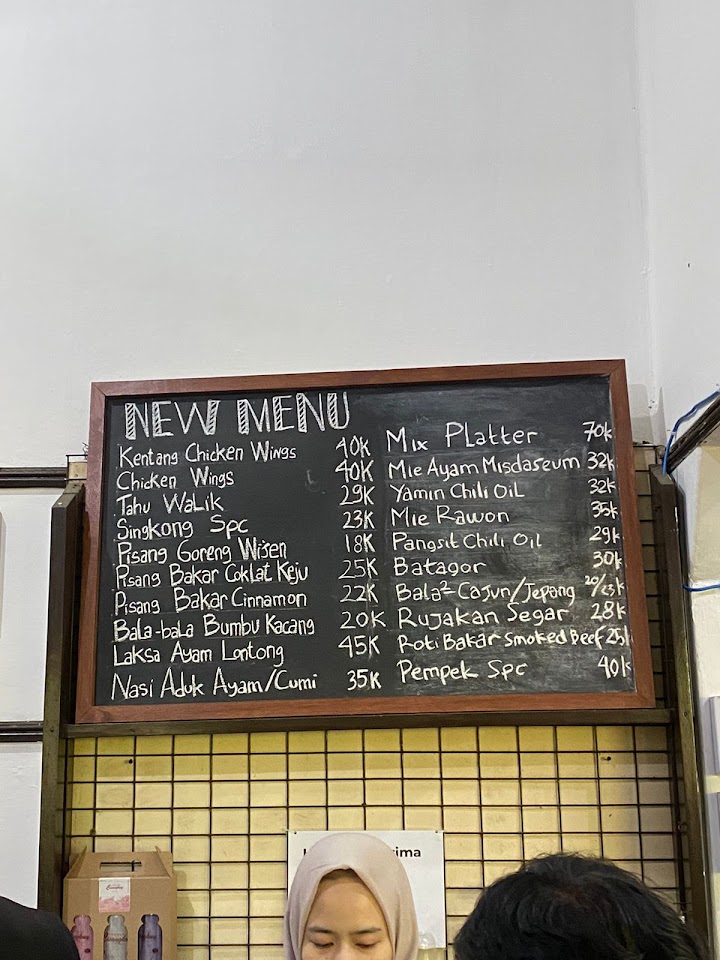 NEW MENU
Kentang Chicken Wings 40K
Chicken Wings 40K
Tahu Walik 29K
Singkong Spc 23K
Pisang Goreng Wisen 18K
Pisang Bakar Coklat Keju 25K
Pisang Bakar Cinnamon 22K
Bala-bala Bumbu Kacang 20K
Laksa Ayam Lontong 45K
Nasi Aduk Ayam/Cumi 35K
Mix Platter 70K
Mie Ayam Misdaseum 32K
Yamin Chili Oil 32K
Mie Rawon 35K
Pangsit Chili Oil 29K
Batagor 30K
Bala²-Cajun/Jepang 20/23K
Rujakan Segar 28K
Roti Bakar Smoked Beef 25K
Pempek Spc 40K